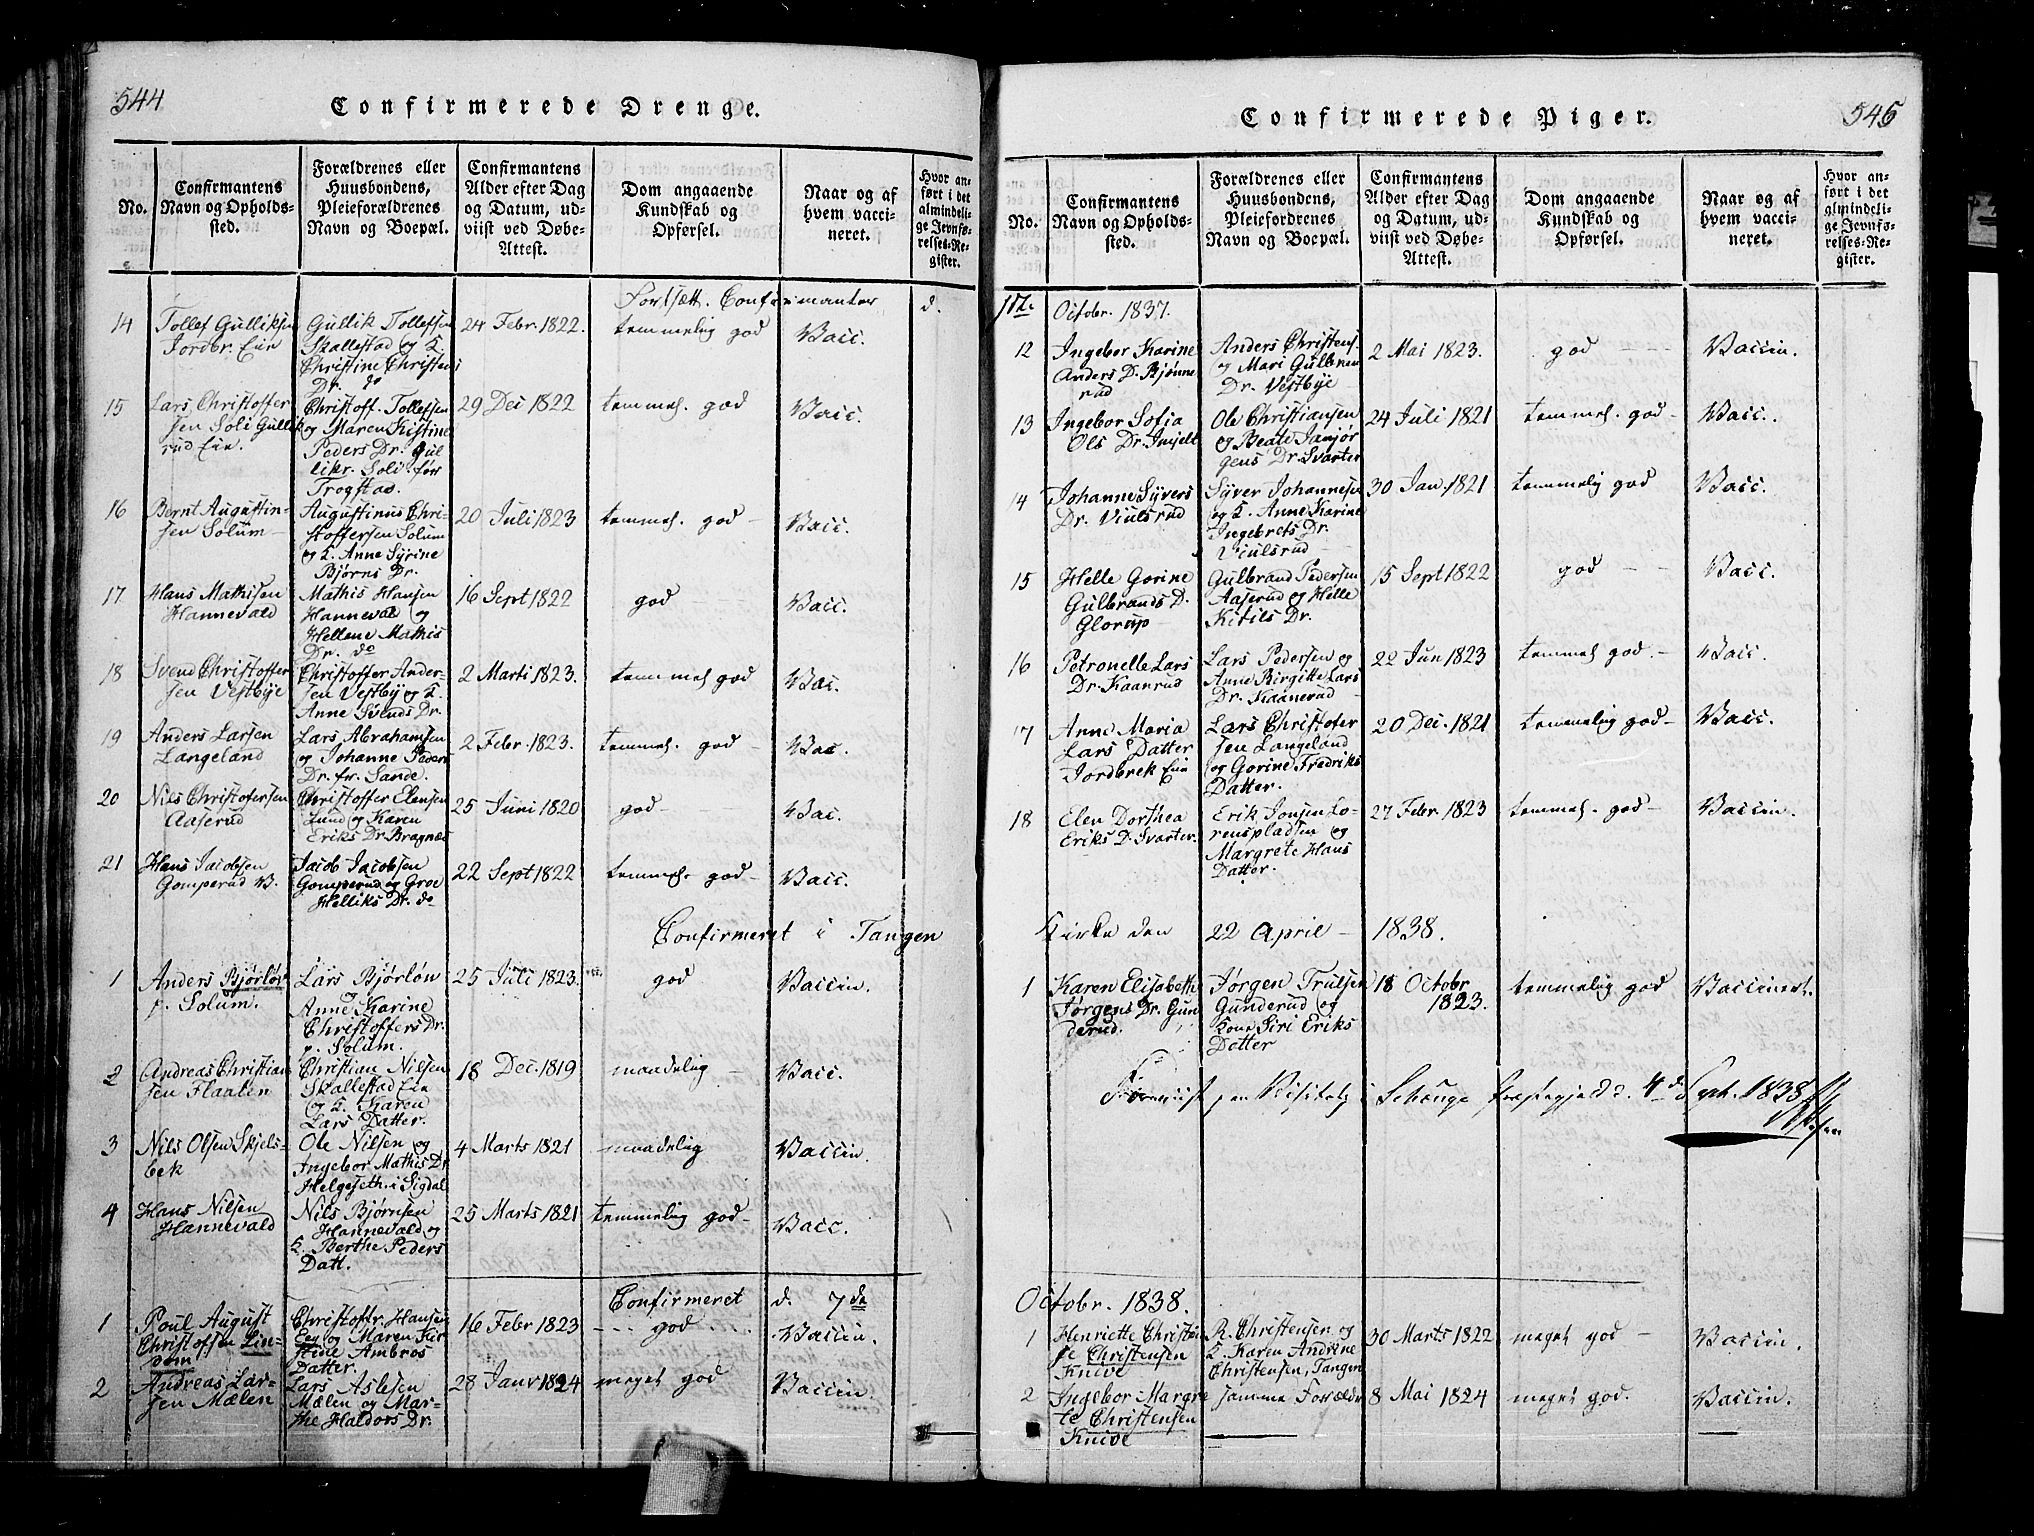 544
Confirmerede Drenge.
No.
Confirmantens
Navn og Opholds-
sted.
Forældrenes eller
Huusbondens,
Pleieforældrenes
Navn og Boepæl.
Confirmantens
Alder efter Dag
og Datum, ud-
viist ved Døbe-
Attest.
Dom angaaende
Kundskab og
Opførsel.
Naar og af
hvem vacci-
neret.
Hvor an-
ført i det
almindeli-
ge Jevnfø-
relses-Re-
gister.
Fortsætt. Confirmanter d.
14
Tollef Gulliksen
Jordbr. Eie
Gullik Tollefsen
Skallestad og K.
Christine Christens
Dr. do
24 Febr. 1822.
temmelig god
Vacc.
15
Lars Christoffer
sen Soli Gullik
rud Eie.
Christoff. Tollefsen
og Maren Kistine
Peders Dr. Gul
likr. Soli før
Trogstad.
29 Dei 1822
temmel. god
Vacc.
16
Bernt Augustin-
sen Solum
Augustinus Chri-
stoffersen Solum
og K. Anne Syrine
Bjørns Dr.
20 Juli 1823
temmel. god
Vacc.
17
Hans Mathisen
Hannevald
Mathis Hansen
Hannevald og
Hellene Mathis
Dr. do
16 Sept 1822
god
Vacc.
18
Svend Christoffer
sen Vestbye
Christoffer Ander-
sen Vestby og K.
Anne Svends Dr.
2 Marti 1823.
temmel god
Vac.
19
Anders Larsen
Langeland
Lars Abrahamsen
og Johanne Peders
Dr. fr. Sande.
2 Febr. 1823.
temmel. god
Vac.
20
Nils Christofersen
Aaserud
Christoffer Elensen
Lund og Karen
Eriks Dr. Bragnæs
25 Juni 1820
god
Vac.
21
Hans Jacobsen
Gomperud V.
Jacob Jacobsen
Gomperud og Groe
Helliks Dr. do
22 Sept 1822
temmel. god
Vacc.
Confirmeret i Tangen
1
Anders Bjørløn
p. Solum.
Lars Bjørløn
og
Anne Karine
Christoffers Dr.
p. Solum.
25 Juli 1823.
god
Vaccin.
2
Andreas Christian
sen Flaaten
Christian Nilsen
Skallestad Eie
og K. Karen
Lars Datter.
18 Dec. 1819
maadelig
Vacc.
3
Nils Olsen Skjels-
bek
Ole Nilsen og
Ingebor Mathis Dr
Helgeseth i Sigdal
4 Marts 1821
maadelig
Vaccin.
4
Hans Nilsen
Hannevald
Nils Bjørnsen
Hannevald og
K. Berthe Peders
Datt.
25 Marts 1821
temmelig god
Vacc.
Confirmeret d. 7de
1
Poul August
Christoffsen Lin-
dom
Christoffr. Hansen
Eeg og Maren Kir
stine Ambros
Datter.
16 Febr 1823
god
Vaccin.
2
Andreas Lar-
sen Mælen
Lars Aslesen
Mælen og Mar-
the Haldors Dr.
28 Janv 1824
meget god
Vaccin.
545
Confirmerede Piger.
No.
Confirmantens
Navn og Opholds-
sted.
Forældrenes eller
Huusbondens,
Pleiefordrenes
Navn og Boepæl.
Confirmantens
Alder efter Dag
og Datum, ud-
viist ved Døbe-
Attest.
Dom angaaende
Kundskab og
Opførsel.
Naar og af
hvem vacci-
neret.
Hvor an-
ført i det
almindeli-
ge Jevnfø-
relses-Re-
gister.
Octobr. 1837.
12
Ingebor Karine
Anders D. Bjønne
rud
Anders Christens.
og Mari Gulbran
Dr. Vestbye
2 Mai 1823.
god
Vaccin.
13
Ingebor Sofia
Ols Dr.
Ole Christiansen
og Beate Janjør
gens Dr. Svarter
24 Juli 1821
temmel. god
Vacc.
14
Johanne Syvers
Dr. Viulsrud
Syver Johannesen
og K. Anne Karine
Ingebrets Dr.
Viulsrud
30 Jan. 1821
temmelig god
Vacc.
15
Helle Gorine
Gulbrands D.
Glorup
Gulbrand Pedersen
Aaserud og Helle
Kitils Dr.
15 Sept 1822
god
Vacc.
16
Petronelle Lars
Dr. Kaanrud
Lars Pedersen og
Anne Birgitte Lars
Dr. Kaanerud
22 Jun 1823
temmel god.
Vacc.
17
Anne Maria
Lars Datter
Jordbrek Eie
Lars Christofer
sen Langeland
og Gorine Fredriks
Datter.
20 Dec. 1821
temmelig god
Vacc.
18
Elen Dorthea
Eriks D. Svarter.
Erik Jonsen Lo-
renspladsen og
Margrete Hans
Datter.
27 Febr. 1823
temmel. god
Vaccin.
Kirke den 22 April 1838.
1
Karen Elisabeth
Jørgens Dr. Gun
derud.
Jørgen Trulsen
Gunderud og
Kone Siri Eriks
Datter
18 Octobr
1823.
temmelig god
Vaccineret.
Foreviist paa Visitats i Præstegjeld d. 4 d Sept. 1838
Octobr. 1838.
1
Henriette Christin
se Christensen
Knive
R. Christensen og
K. Karen Andrine
Christensen, Tangen
30 Marts 1822
meget god
Vaccin.
2
Ingebor Margre
te Christensen
Knive
samme Forældre
8 Mai 1824
meget god.
Vaccin.